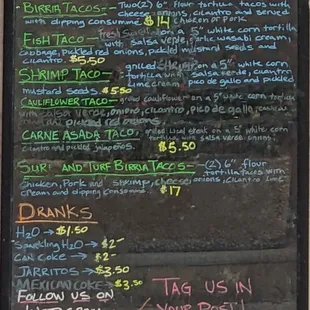 BIRRIA TACOS- Two(2) 6" flour tortilla, tacos with
cheese, onions, cilantro and served
with dipping consume. $14 chicken or pork
FISH TACO- fresh on a 5" white corn tortilla
with salsa verde, garlic wasabi cream,
cabbage, pickled red onions, pickled mustard seeds and
cilantro. $5.50
SHRIMP TACO- grilled shrimp, on a 5" white corn
tortilla with salsa verde, cilantro
lime cream pico de gallo and pickled
mustard seeds. 4.550
CAULIFLOWER TACO- grilled cauliflower on a 5" white corn tortilla
with salsa verde, onion, cilantro, pico de gallo,
and pickled onions.
CARNE ASADA TACO, grilled steak on a 5" white corn
tortilla with salsa verde, onion,
cilantro and pickled jalapeños. $5.50
SURF AND TURF BIRRIA TACOS- (2) 6" flour
tortilla tacos with
Chicken, Pork and Shrimp, cheese, onions, cilantro lime
cream and dipping consume. $17
DRANKS
H2O → $1.50
Sparkling H2O → $2-
CAN COKE → $2-
JARRITOS → $3.50
MEXICAN COKE → $3.50
FOLLOW US ON
TAG US IN
YOUR POST!